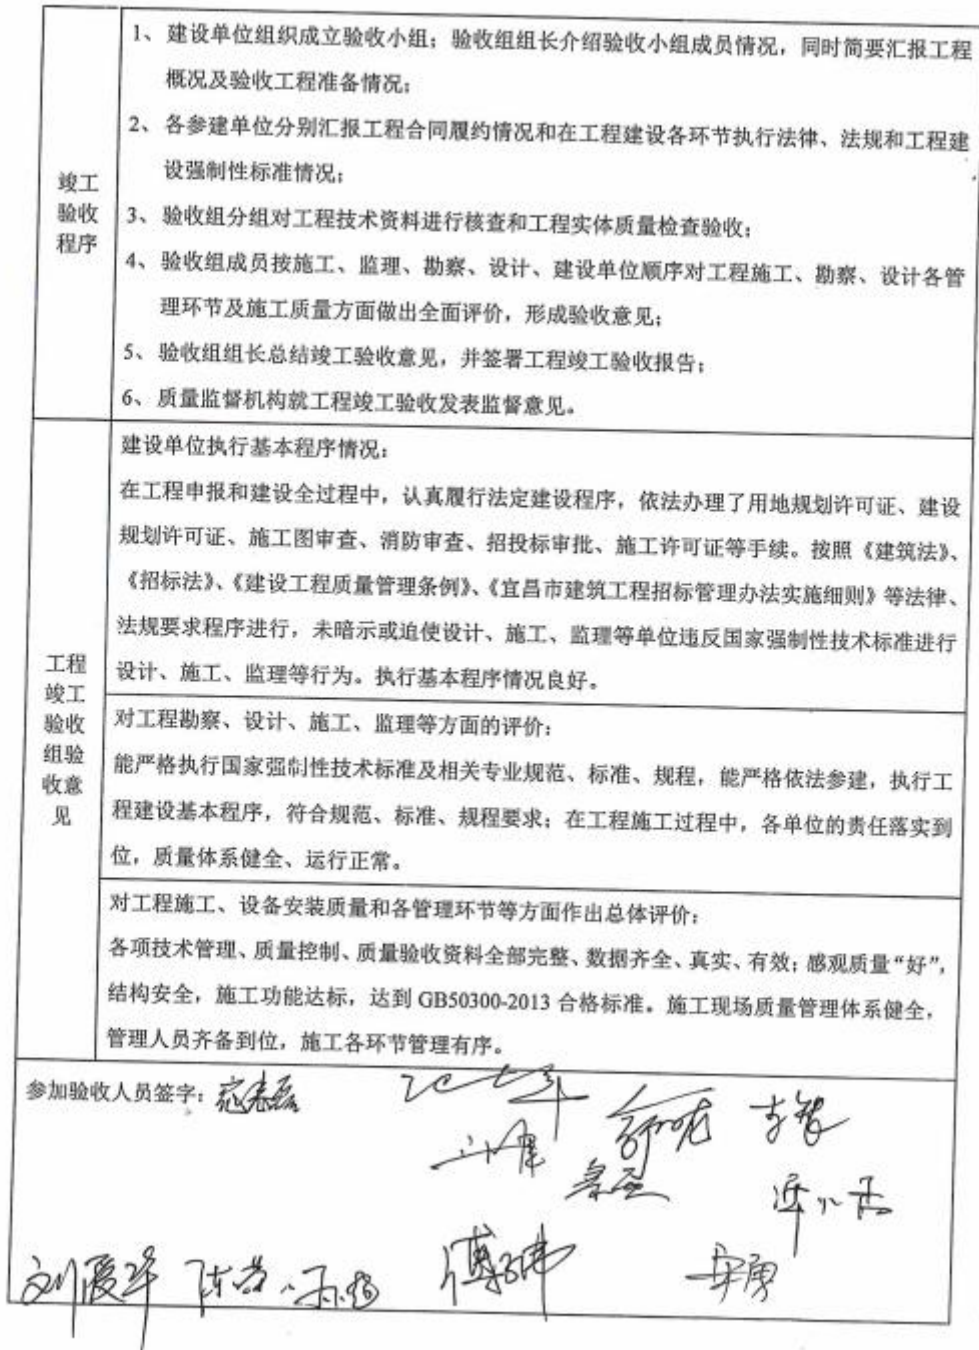 竣工
验收
程序
1、建设单位组织成立验收小组；验收组组长介绍验收小组成员情况，同时简要汇报工程
概况及验收工程准备情况；
2、各参建单位分别汇报工程合同履约情况和在工程建设各环节执行法律、法规和工程建
设强制性标准情况；
3、验收组分组对工程技术资料进行核查和工程实体质量检查验收；
4、验收组成员按施工、监理、勘察、设计、建设单位顺序对工程施工、勘察、设计各管
理环节及施工质量方面做出全面评价，形成验收意见；
5、验收组组长总结竣工验收意见，并签署工程竣工验收报告；
6、质量监督机构就工程竣工验收发表监督意见。
工程
竣工
验收
组验
收意
见
建设单位执行基本程序情况：
在工程申报和建设全过程中，认真履行法定建设程序，依法办理了用地规划许可证、建设
规划许可证、施工图审查、消防审查、招投标审批、施工许可证等手续。按照《建筑法》、
《招标法》、《建设工程质量管理条例》、《宜昌市建筑工程招标管理办法实施细则》等法律、
法规要求程序进行，未暗示或迫使设计、施工、监理等单位违反国家强制性技术标准进行
设计、施工、监理等行为。执行基本程序情况良好。
对工程勘察、设计、施工、监理等方面的评价：
能严格执行国家强制性技术标准及相关专业规范、标准、规程，能严格依法参建，执行工
程建设基本程序，符合规范、标准、规程要求；在工程施工过程中，各单位的责任落实到
位，质量体系健全、运行正常。
对工程施工、设备安装质量和各管理环节等方面作出总体评价：
各项技术管理、质量控制、质量验收资料全部完整、数据齐全、真实、有效；感观质量“好”，
结构安全，施工功能达标，达到 GB50300-2013 合格标准。施工现场质量管理体系健全，
管理人员齐备到位，施工各环节管理有序。
参加验收人员签字：
刘爱华